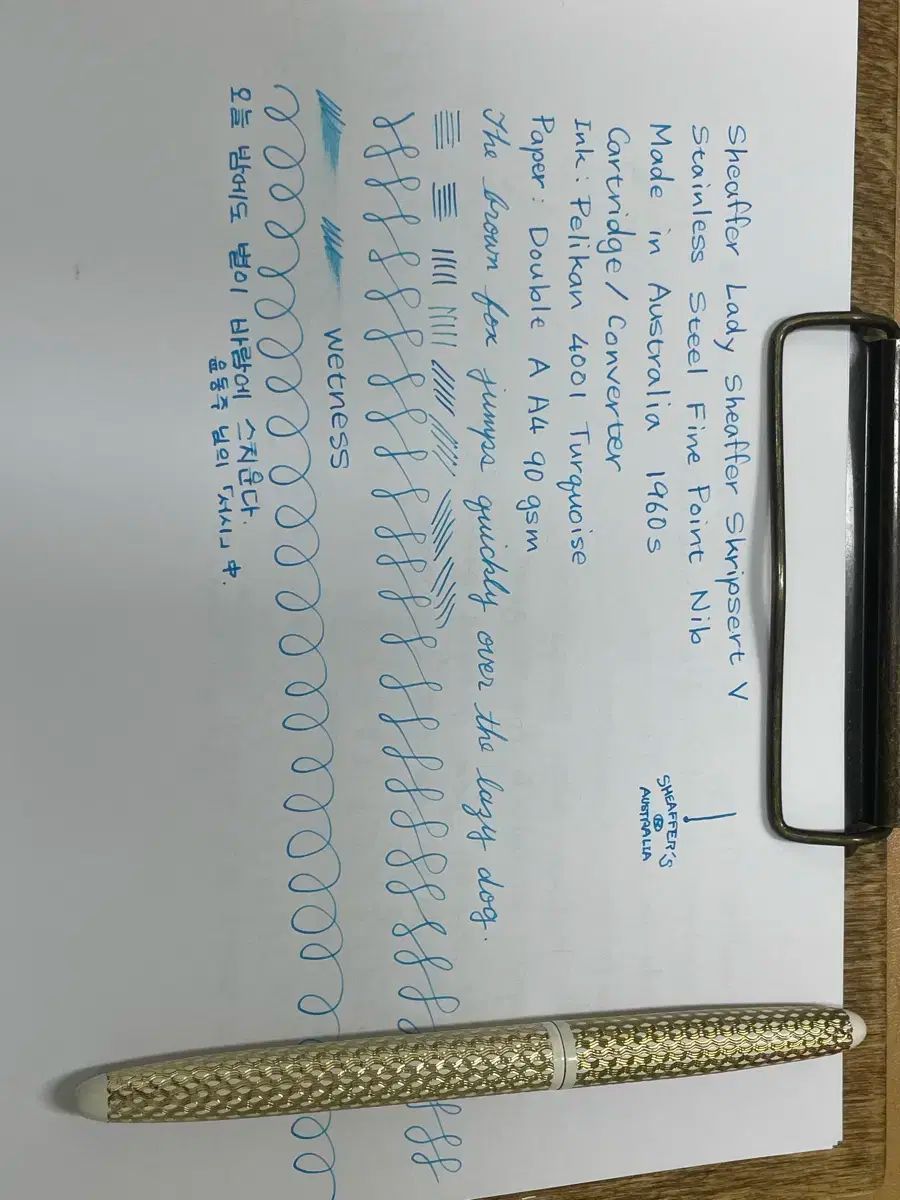 Sheaffer Lady Sheaffer Skripsert V
Stainless Steel Fine Point Nib
Made in Australia 1960s
Cartridge/Converter
Ink: Pelikan 4001 Turquoise
Paper: Double A A4 90 gsm
SHEAFFER'S
®
AUSTRALIA
The brown fox jumps quickly over the lazy dog.
wetness
오늘 밤에도 별이 바람에 스치운다.
윤동주 님의 「서시」 中.